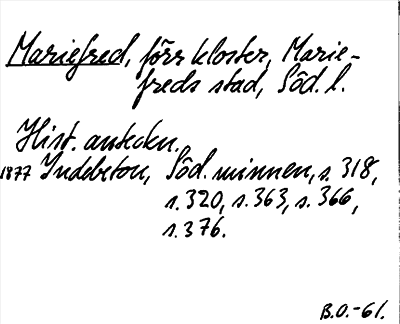 Mariefred, förr kloster, Marie-
freds stad, Söd. l.
Hist. anteckn.
1877 Indebetou, Söd. minnen, s. 318,
s. 320, s. 363, s. 366,
s. 376.
B.O.-61.